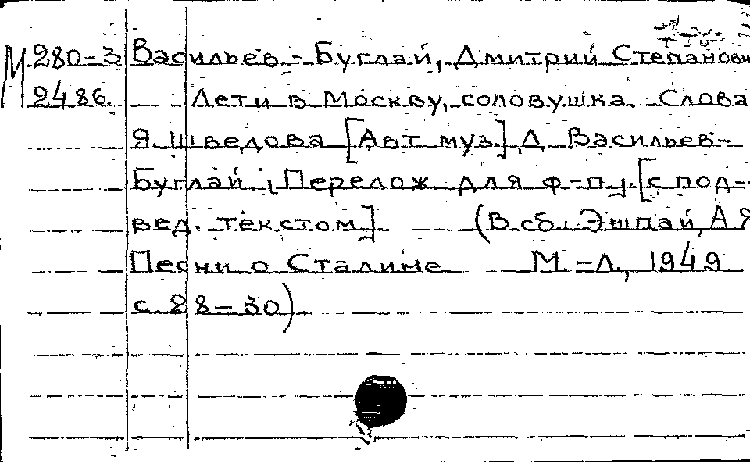 М 280-3 Васильев-Буглай, Дмитрий Степанови
2486. Лети в Москву, соловушка. Слова
Я. Шведова [Авт. муз.] Д. Васильев-
Буглай, Перелож. для ф-п., [с под-
вед. текстом] (В сб.: Эшпай, А.Я
Песни о Сталине М.-Л., 1949
с. 28-30)